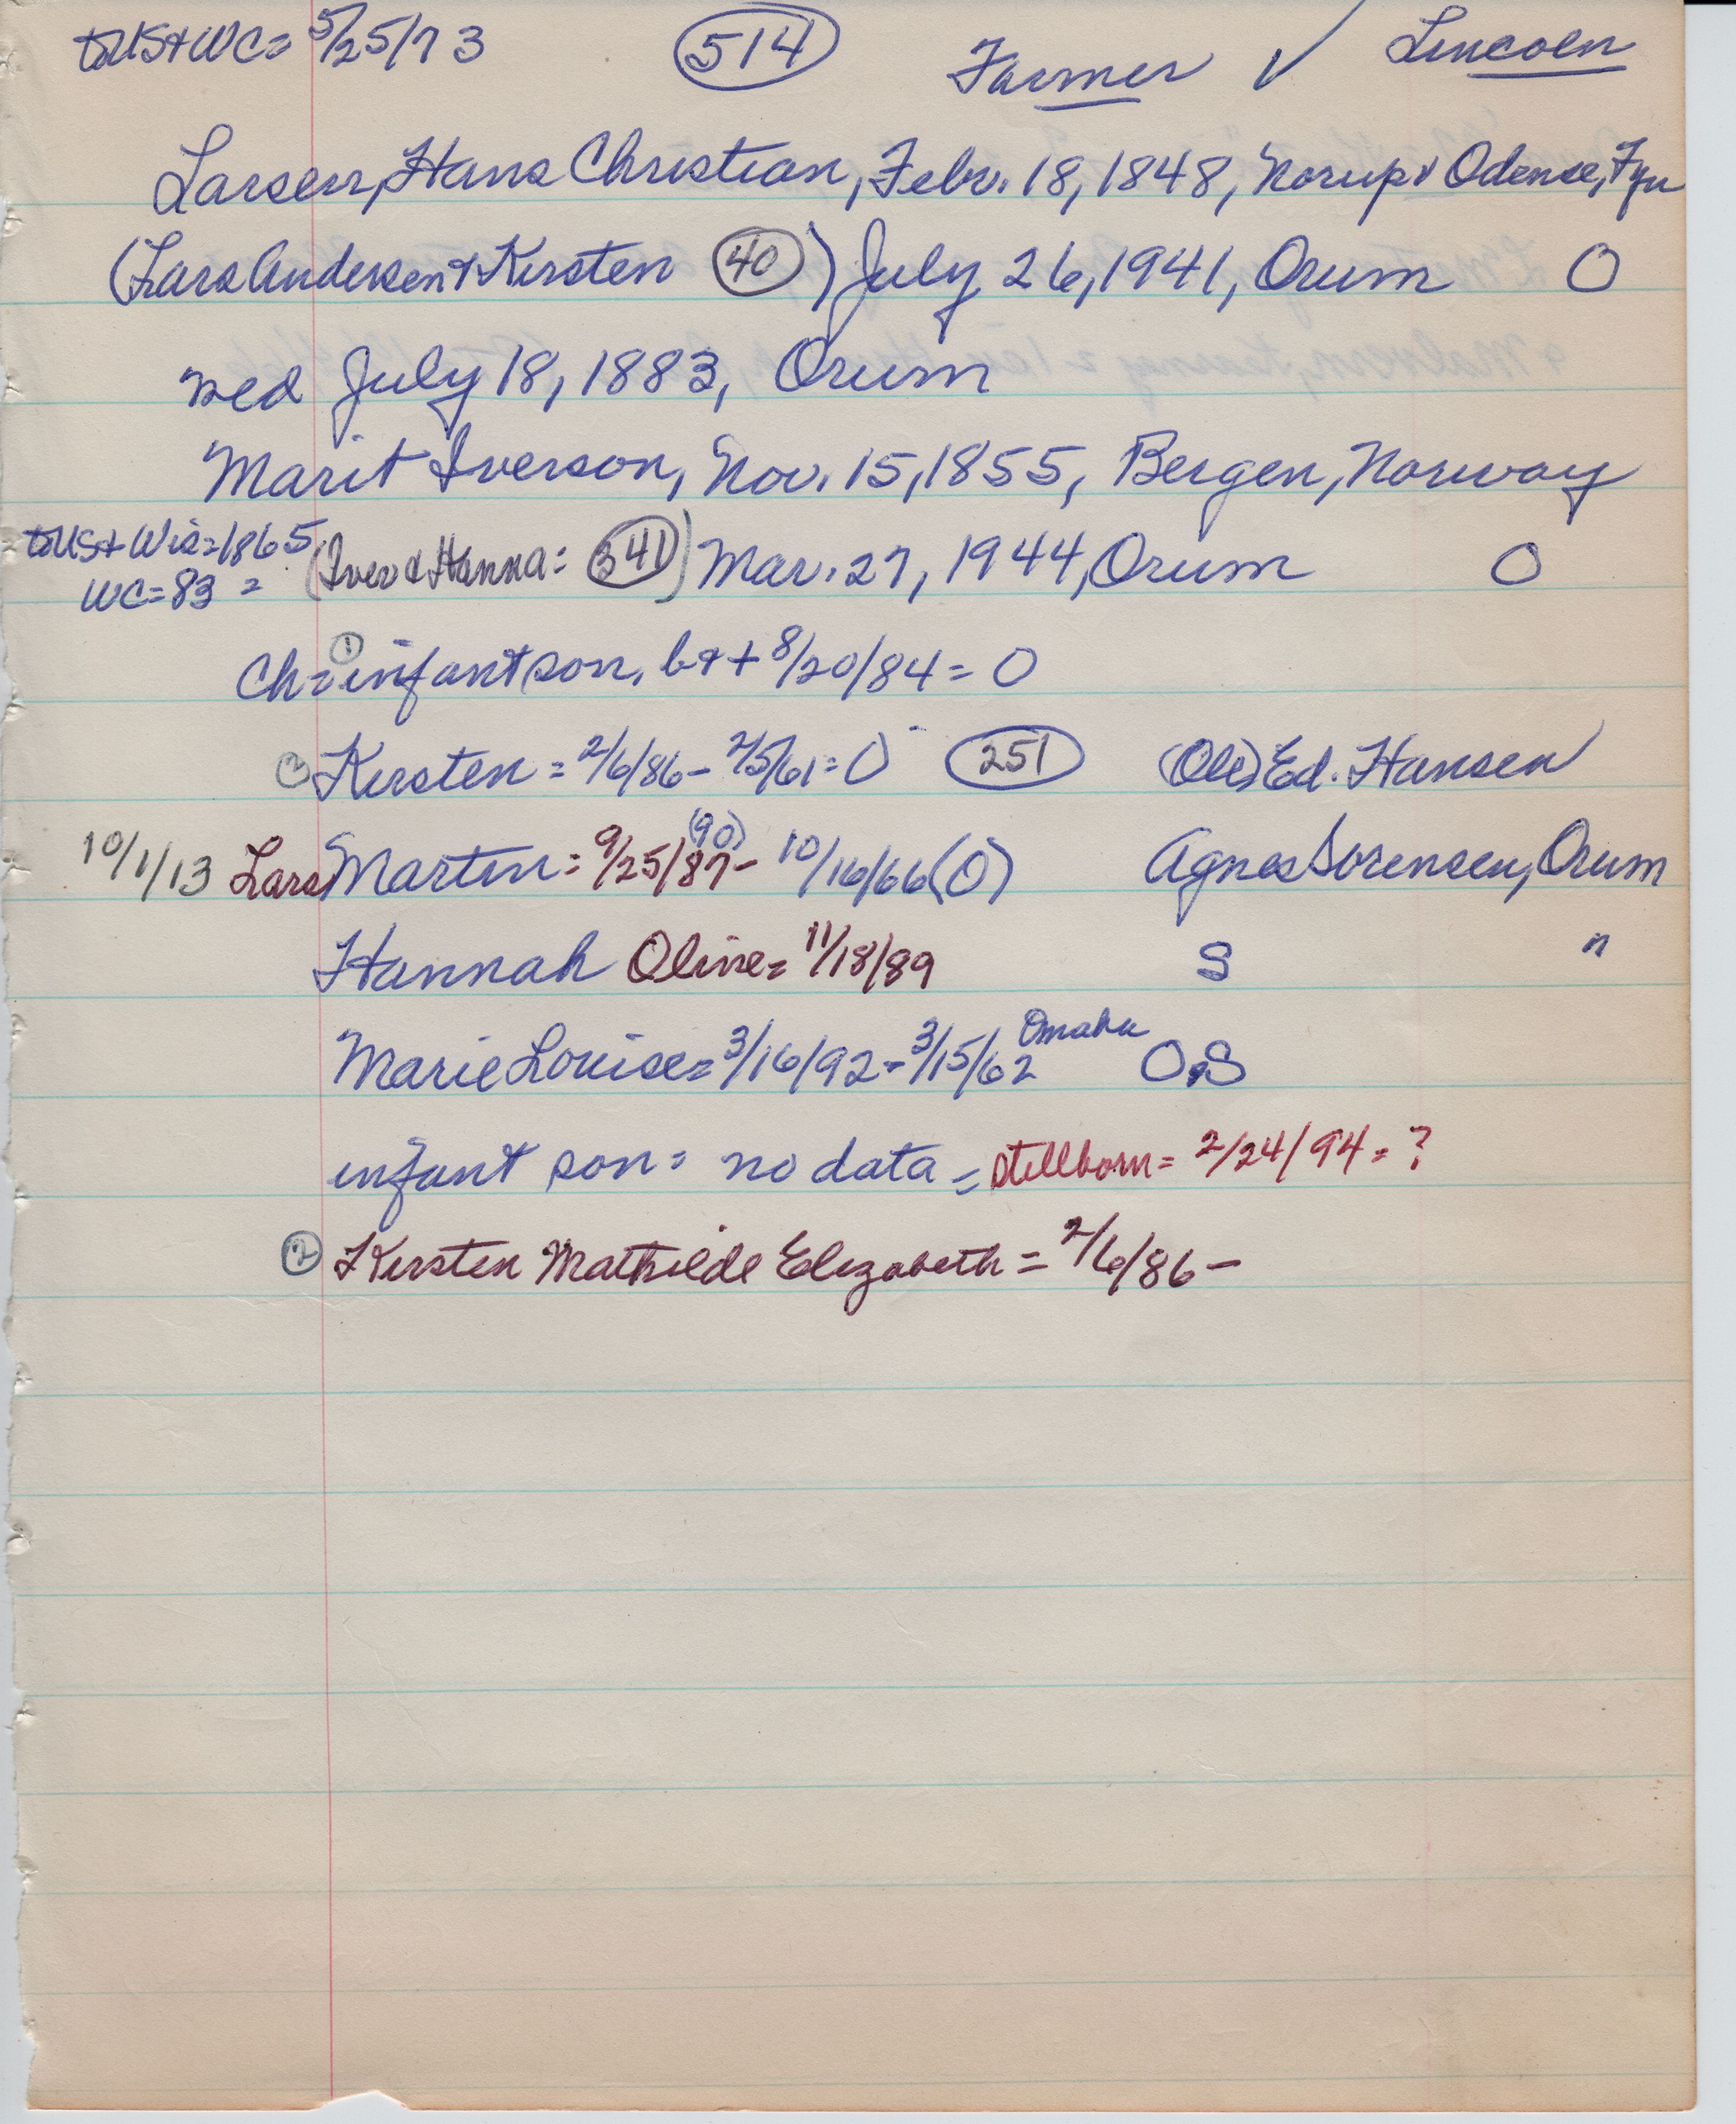 toUS+WC= 5/25/73 514 Farmer ✓ Lincoln
Larsen, Hans Christian, Febr. 18, 1848, Norup & Odense, Fyn
(Lars Andersen & Kirsten 40) July 26, 1941, Orum O
wed July 18, 1883, Orum
Marit Iverson, Nov. 15, 1855, Bergen, Norway
toUS+Wis=1865 (Iver & Hanna: 341) Mar. 27, 1944, Orum O
WC=83 =
Ch: ① infant son, b & + 8/20/84 = O
Kirsten = 2/6/86 - 2/5/61 = O 251 (Ole) Ed. Hansen
10/1/13 Lars Martin = 9/25/87 (90) - 10/16/66 (O) Agnes Sorensen, Orum
Hannah Oline = 11/18/89 S "
Marie Louise = 3/16/92 - 3/15/62 Omaha O.S
infant son = no data = stillborn = 2/24/94 = ?
② Kirsten Mathilde Elizabeth = 2/6/86 -